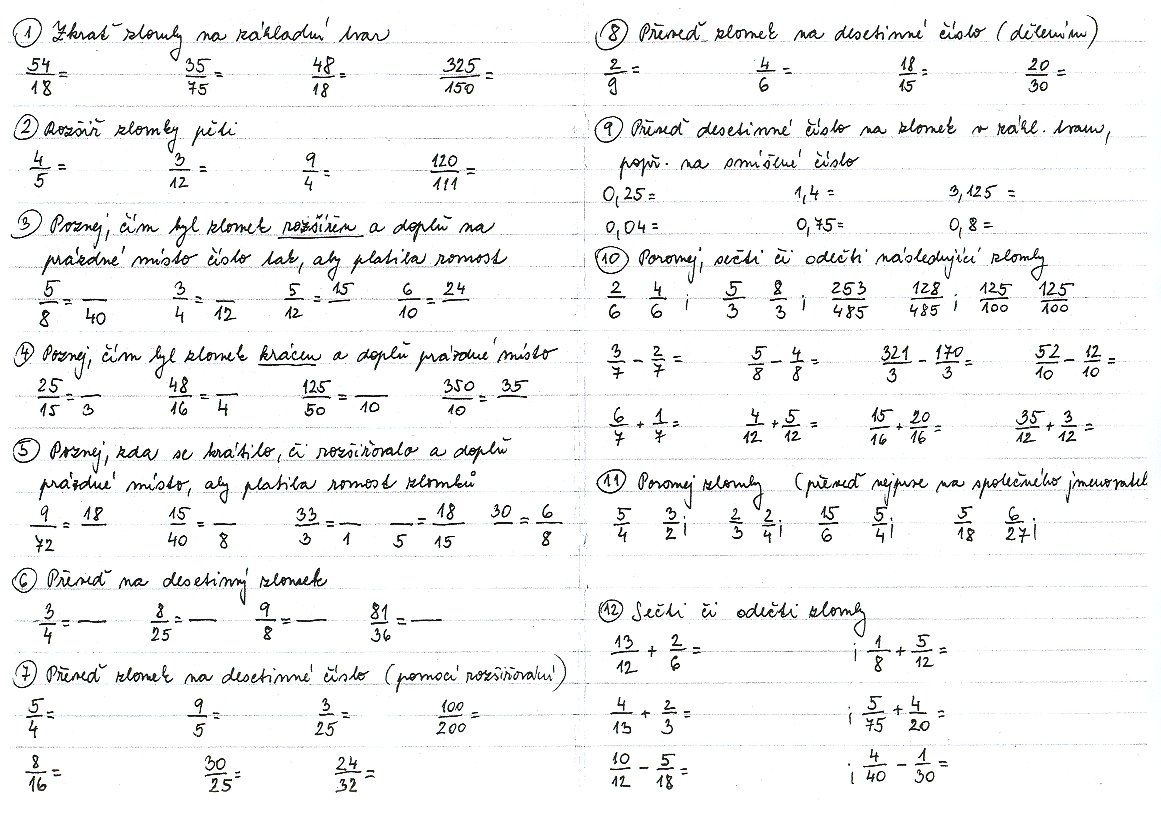 ① Zkrať zlomky na základní tvar
54/18 = 35/75 = 48/18 = 325/150 =
② Rozšiř zlomky pěti
4/5 = 3/12 = 9/4 = 120/111 =
③ Poznej, čím byl zlomek rozšířen a doplň na
prázdné místo číslo tak, aby platila rovnost
5/8 = __/40 3/4 = __/12 5/12 = 15/__ 6/10 = 24/__
④ Poznej, čím byl zlomek krácen a doplň prázdné místo
25/15 = __/3 48/16 = __/4 125/50 = __/10 350/10 = 35/__
⑤ Poznej, zda se krátilo, či rozšiřovalo a doplň
prázdné místo, aby platila rovnost zlomků
9/72 = 18/__ 15/40 = __/8 33/3 = __/1 __/5 = 18/15 30/__ = 6/8
⑥ Převeď na desetinný zlomek
3/4 = __ 8/25 = __ 9/8 = __ 81/36 = __
⑦ Převeď zlomek na desetinné číslo (pomocí rozšiřování)
5/4 = 9/5 = 3/25 = 100/200 =
8/16 = 30/25 = 24/32 =
⑧ Převeď zlomek na desetinné číslo (dělením)
2/9 = 4/6 = 18/15 = 20/30 =
⑨ Převeď desetinné číslo na zlomek v zákl. tvaru,
popř. na smíšené číslo
0,25 = 1,4 = 3,125 =
0,04 = 0,75 = 0,8 =
⑩ Porovnej, sečti či odečti následující zlomky
2/6 4/6 ; 5/3 8/3 ; 253/485 128/485 ; 125/100 125/100
3/7 - 2/7 = 5/8 - 4/8 = 321/3 - 170/3 = 52/10 - 12/10 =
6/7 + 1/7 = 4/12 + 5/12 = 15/16 + 20/16 = 35/12 + 3/12 =
⑪ Porovnej zlomky (převeď nejprve na společného jmenovatel
5/4 3/2 ; 2/3 2/4 ; 15/6 5/4 ; 5/18 6/27 ;
⑫ Sečti či odečti zlomky
13/12 + 2/6 = ; 1/8 + 5/12 =
4/13 + 2/3 = ; 5/75 + 4/20 =
10/12 - 5/18 = ; 4/40 - 1/30 =